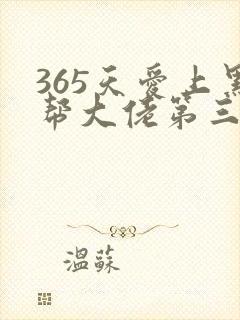 365天爱上黑
帮大佬第三
温蘇